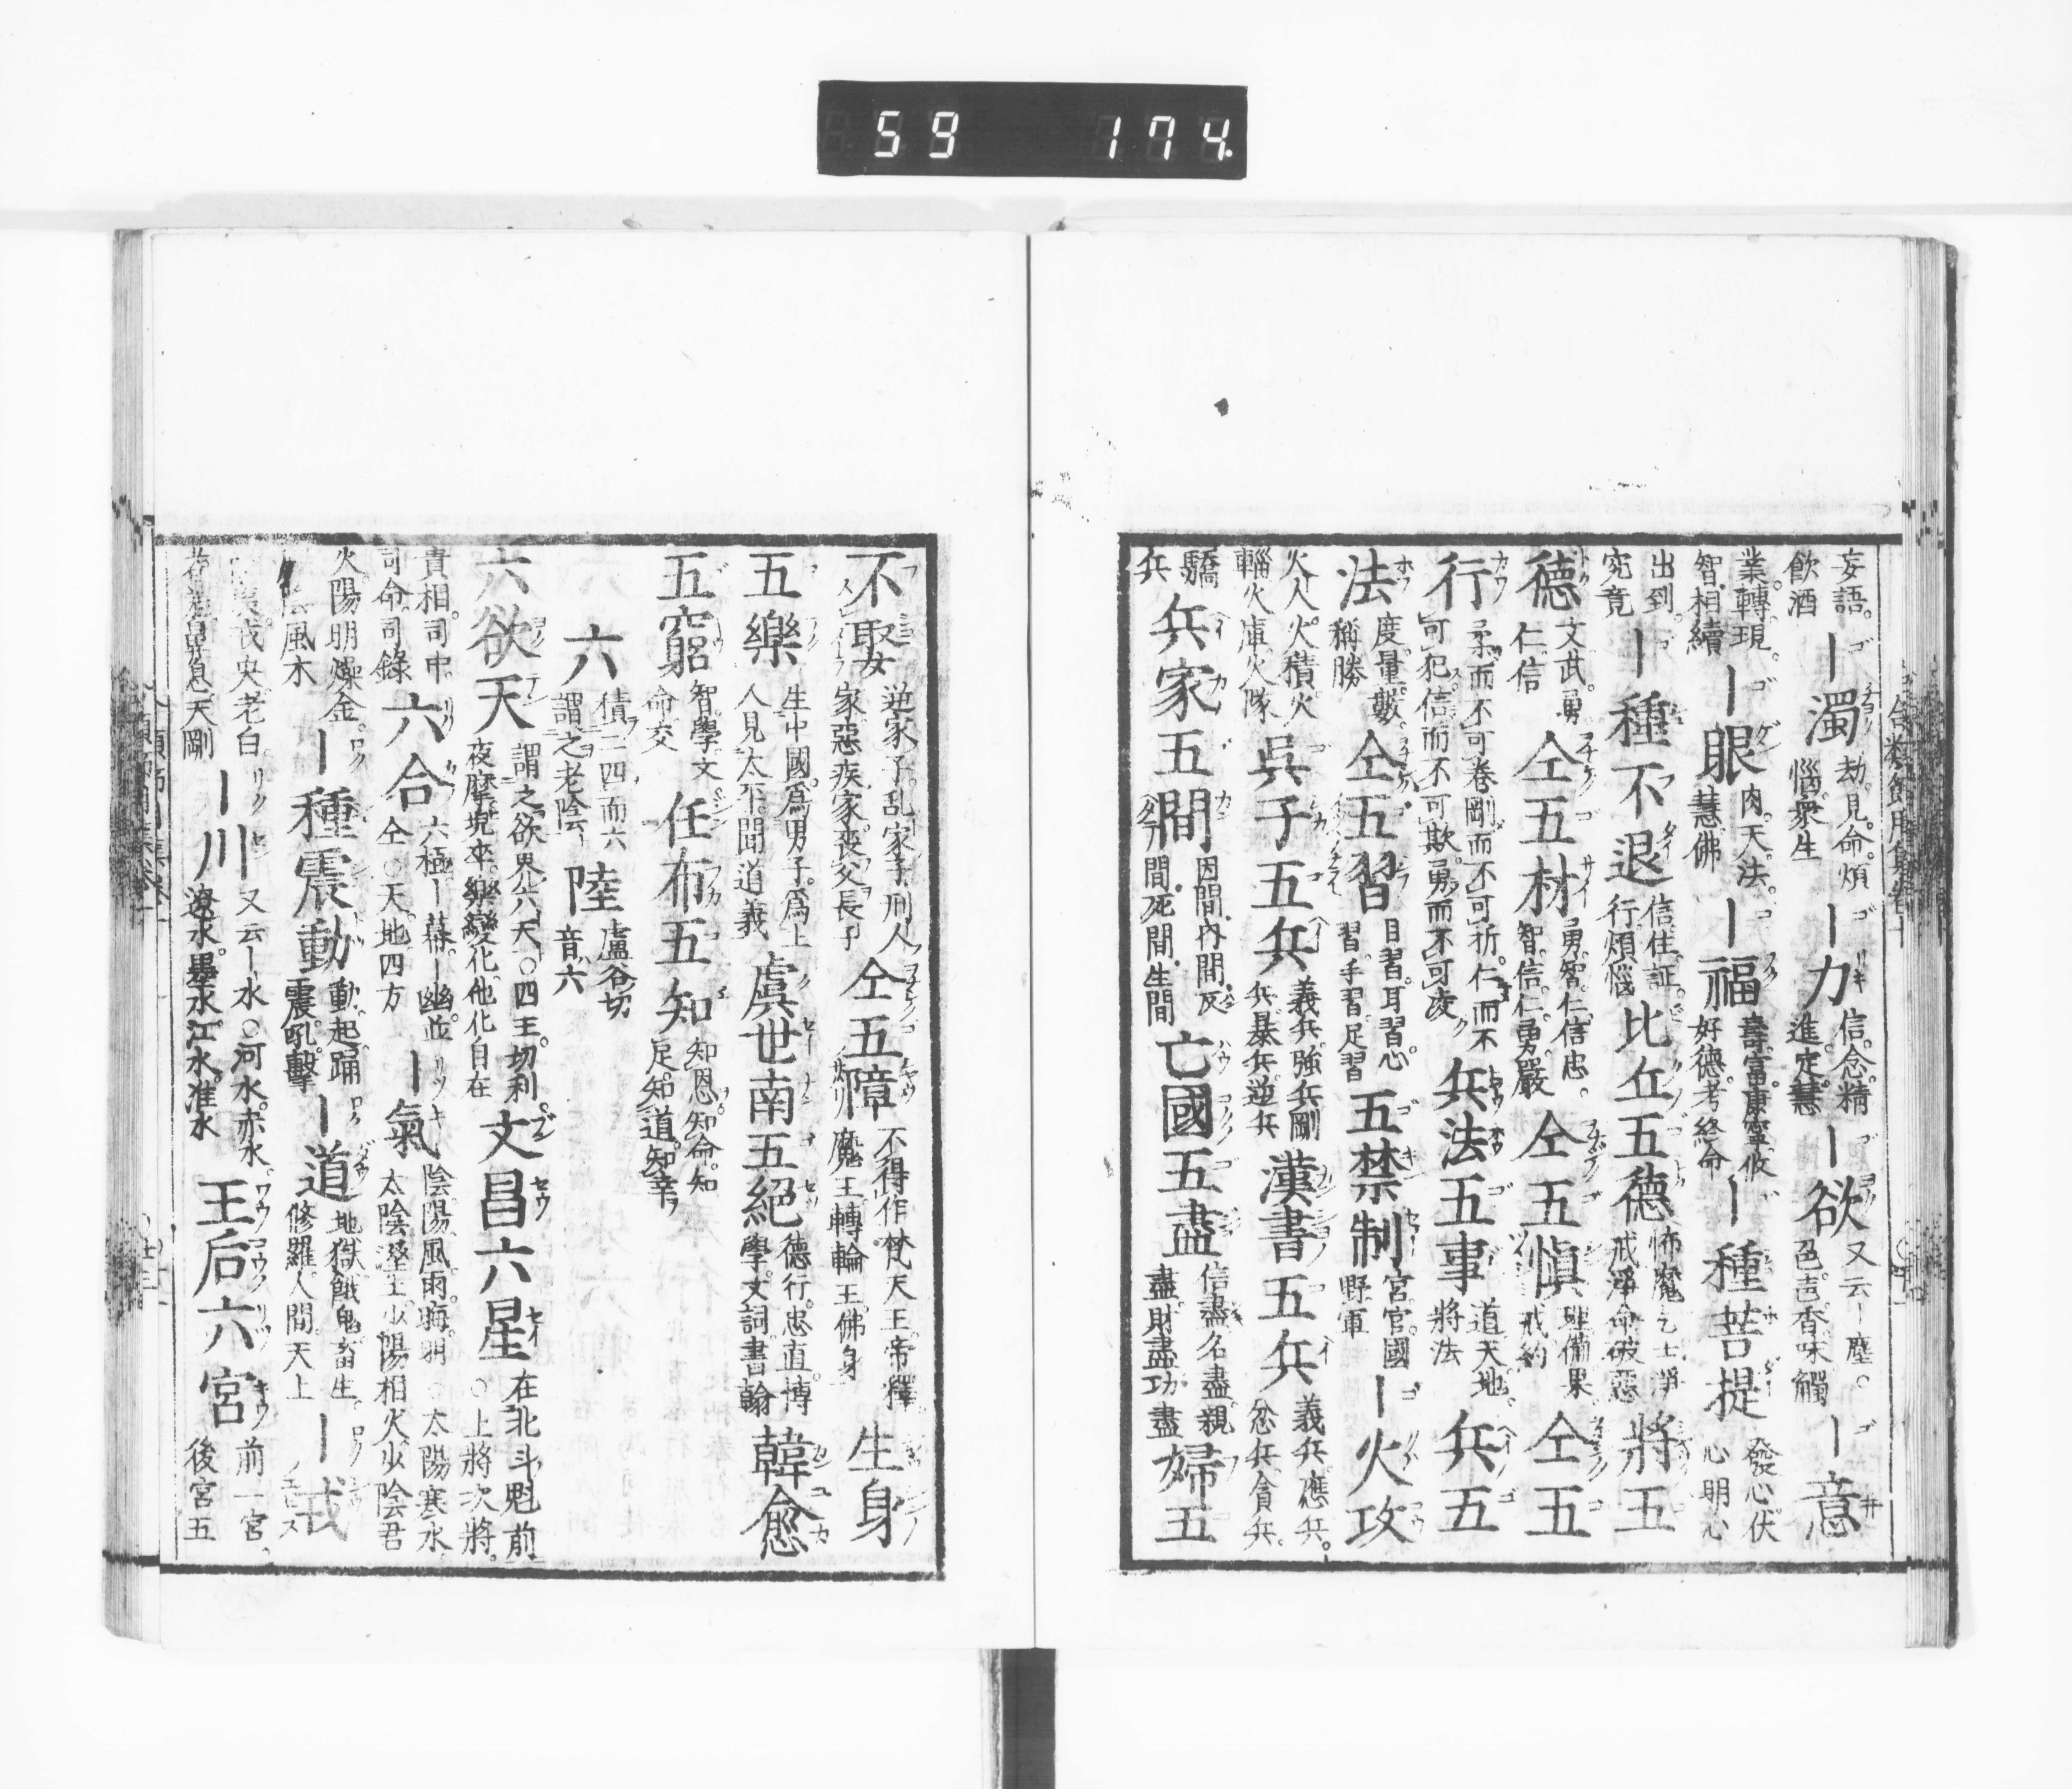 59 174
妄語。飲酒 ｜濁 劫。見。命。煩惱。衆生 ｜力 信。念。精進。定。慧 ｜欲 又云｜塵。色。声。香。味。觸 ｜意
業轉。現。智。相續 ｜眼 肉。天。法。慧。佛 ｜福 壽。富。康寧。攸好德。考終命 ｜種菩提 發心。伏心。明心
出到。究竟 ｜種不退 信。住。証。行。煩惱 比丘五德 怖魔。乞士。淨戒。淨命。破惡 將五
德 文武。勇。仁。信 仝五材 勇。智。仁。信。忠。智。信。仁。勇。嚴 仝五愼 理。備。果。戒。約 仝五
行 柔而不可卷。剛而不可折。仁而不可犯。信而不可欺。勇而不可凌 兵法五事 道。天。地。將。法 兵五
法 度。量。數。稱。勝 仝五習 目習。耳習。心習。手習。足習 五禁制 宮。官。國。野。軍 ｜火攻
火人。火積。火輜。火庫。火隊 呉子五兵 義兵。強兵。剛兵。暴兵。逆兵 漢書五兵 義兵。應兵。忿兵。貪兵。
驕兵 兵家五間 因間。内間。反間。死間。生間 亡國五盡 信盡。名盡。親盡。財盡。功盡 婦五
不娶 逆家子。乱家子。刑人家。惡疾家。喪父長子 仝五障 不得作梵天王。帝釋。魔王。轉輪王。佛身 生身
五樂 生中國。爲男子。爲上人。見太平。聞道義 虞世南五絕 德行。忠直。博學。文詞。書翰 韓愈
五窮 智。學。文。命。交 任布五知 知恩。知命。知足。知道。知幸
六 積二四而六謂之老陰 陸 盧谷切音六
六欲天 謂之欲界六天○四王。切利。夜摩。兜率。樂變化。他化自在 文昌六星 在北斗魁前○上將。次將。
貴相。司中。司命。司錄 六合 六極｜幕｜幽並仝○天地四方 ｜氣 陰陽風雨晦明○太陽寒水。太陰溼土。少陽相火。少陰君
火。陽明燥金。風木 ｜種震動 動。起。踊。震。吼。擊 ｜道 地獄。餓鬼。畜生。修羅。人間。天上 ｜戒
｜川 又云｜水○河水。赤水。遼水。黒水。江水。淮水 王后六宮 前一宮。後宮五